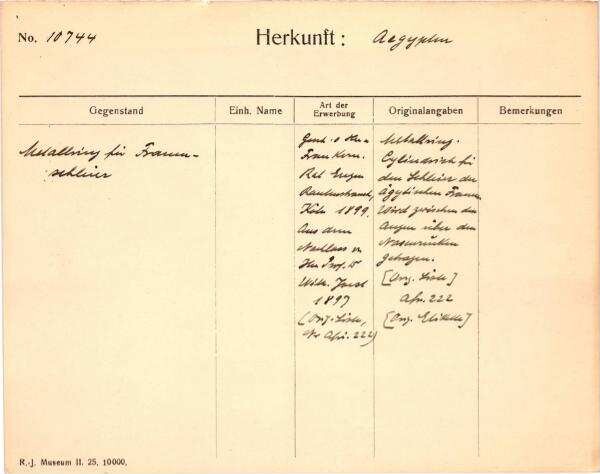 No. 10744
Herkunft: Aegypten
Gegenstand
Einh. Name
Art der Erwerbung
Originalangaben
Bemerkungen
Metallring für Frauen-
schleier
Gesch. d. Hrn u.
Frau Kom.
Rat Eugen
Rautenstrauch,
Köln 1899.
Aus dem
Nachlass v.
Hrn Prof. Dr
Wilh. Joest
1897
(Orig. Liste,
No Afr. 222)
Metallring.
Cylindrisch für
den Schleier der
ägyptischen Frauen
Wird zwischen den
Augen über dem
Nasenrücken
getragen.
[Orig. Liste]
Afr. 222
[Orig. Etikette]
R.-J. Museum II. 25. 10000.